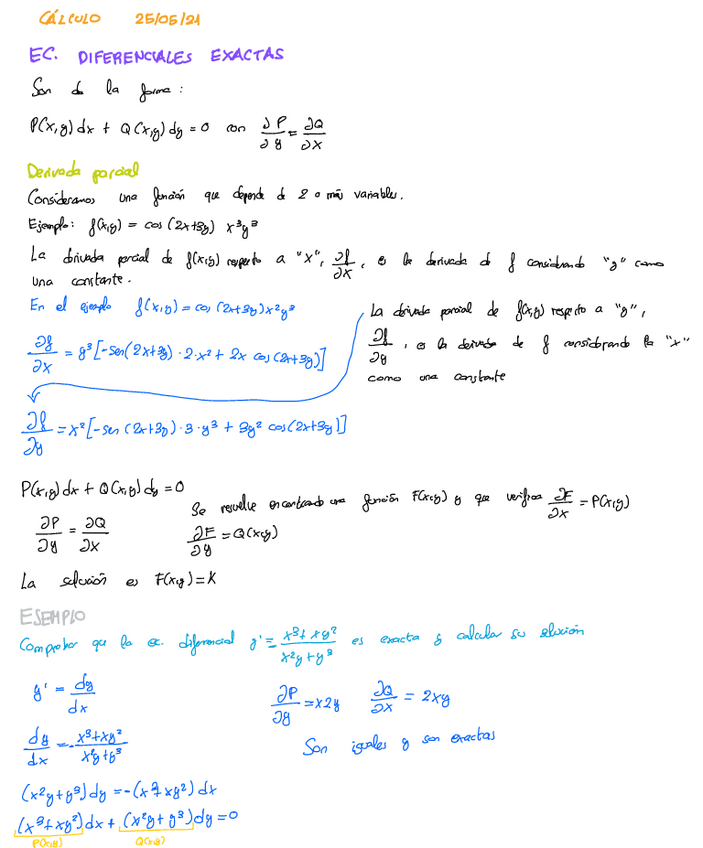 CÁLCULO 25/05/21
EC. DIFERENCIALES EXACTAS
Son de la forma:
P(x,y) dx + Q(x,y) dy = 0 con ∂P/∂y = ∂Q/∂x
Derivada parcial
Consideramos una función que depende de 2 o más variables.
Ejemplo: f(x,y) = cos (2x+3y) x³y³
La derivada parcial de f(x,y) respecto a "x", ∂f/∂x, es la derivada de f considerando "y" como
una constante.
En el ejemplo f(x,y) = cos (2x+3y) x²y³
∂f/∂x = y³ [-sen(2x+3y) · 2 · x² + 2x cos (2x+3y)]
La derivada parcial de f(x,y) respecto a "y",
∂f/∂y, es la derivada de f considerando la "x"
como una constante
∂f/∂y = x² [-sen (2x+3y) · 3 · y³ + 3y² cos(2x+3y)]
P(x,y) dx + Q(x,y) dy = 0
∂P/∂y = ∂Q/∂x
Se resuelve encontrando una función F(x,y) y que verifica ∂F/∂x = P(x,y)
∂F/∂y = Q(x,y)
La solución es F(x,y) = K
EJEMPLO
Comprobar que la ec. diferencial y' = x³+xy²/x²y+y³ es exacta y calcular su solución
y' = dy/dx
dy/dx = -x³+xy²/x²y+y³
(x²y+y³) dy = -(x³+xy²) dx
(x³+xy²) dx + (x²y+y³) dy = 0
P(x,y) Q(x,y)
∂P/∂y = x2y ∂Q/∂x = 2xy
Son iguales y son exactas